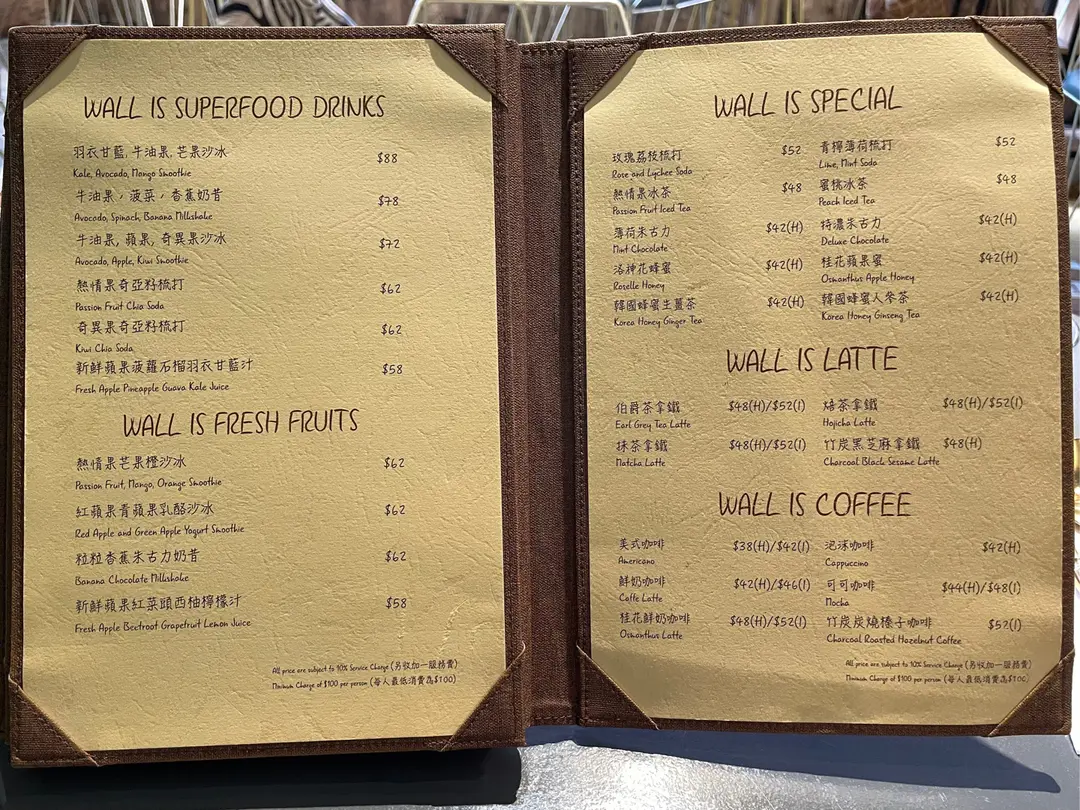 WALL IS SUPERFOOD DRINKS
羽衣甘藍, 牛油果, 芒果沙冰 $88
Kale, Avocado, Mango Smoothie
牛油果，菠菜，香蕉奶昔 $78
Avocado, Spinach, Banana Milkshake
牛油果, 蘋果, 奇異果沙冰 $72
Avocado, Apple, Kiwi Smoothie
熱情果奇亞籽梳打 $62
Passion Fruit Chia Soda
奇異果奇亞籽梳打 $62
Kiwi Chia Soda
新鮮蘋果菠蘿石榴羽衣甘藍汁 $58
Fresh Apple Pineapple Guava Kale Juice
WALL IS FRESH FRUITS
熱情果芒果橙沙冰 $62
Passion Fruit, Mango, Orange Smoothie
紅蘋果青蘋果乳酪沙冰 $62
Red Apple and Green Apple Yogurt Smoothie
粒粒香蕉朱古力奶昔 $62
Banana Chocolate Milkshake
新鮮蘋果紅菜頭西柚檸檬汁 $58
Fresh Apple Beetroot Grapefruit Lemon Juice
All price are subject to 10% Service Charge (另收加一服務費)
Minimum Charge of $100 per person (每人最低消費為$100)
WALL IS SPECIAL
玫瑰荔枝梳打 $52
Rose and Lychee Soda
熱情果冰茶 $48
Passion Fruit Iced Tea
薄荷朱古力 $42(H)
Mint Chocolate
洛神花蜂蜜 $42(H)
Roselle Honey
韓國蜂蜜生薑茶 $42(H)
Korea Honey Ginger Tea
青檸薄荷梳打 $52
Lime, Mint Soda
蜜桃冰茶 $48
Peach Iced Tea
特濃朱古力 $42(H)
Deluxe Chocolate
桂花蘋果蜜 $42(H)
Osmanthus Apple Honey
韓國蜂蜜人參茶 $42(H)
Korea Honey Ginseng Tea
WALL IS LATTE
伯爵茶拿鐵 $48(H)/$52(I)
Earl Grey Tea Latte
抹茶拿鐵 $48(H)/$52(I)
Matcha Latte
焙茶拿鐵 $48(H)/$52(I)
Hojicha Latte
竹炭黑芝麻拿鐵 $48(H)
Charcoal Black Sesame Latte
WALL IS COFFEE
美式咖啡 $38(H)/$42(I)
Americano
鮮奶咖啡 $42(H)/$46(I)
Caffe Latte
桂花鮮奶咖啡 $48(H)/$52(I)
Osmanthus Latte
泡沫咖啡 $42(H)
Cappuccino
可可咖啡 $44(H)/$48(I)
Mocha
竹炭炭燒榛子咖啡 $52(I)
Charcoal Roasted Hazelnut Coffee
All price are subject to 10% Service Charge (另收加一服務費)
Minimum Charge of $100 per person (每人最低消費為$100)